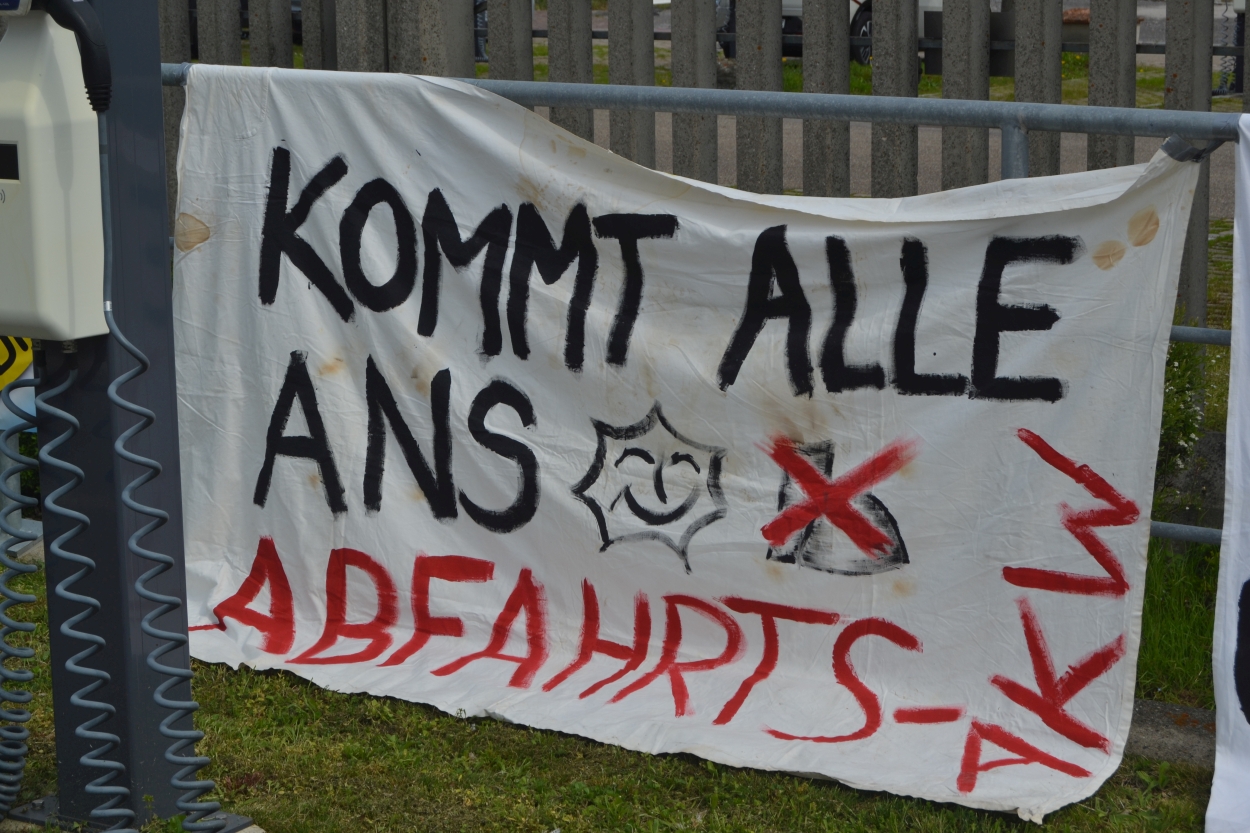 KOMMT ALLE
ANS
ABFAHRTS-
AKW